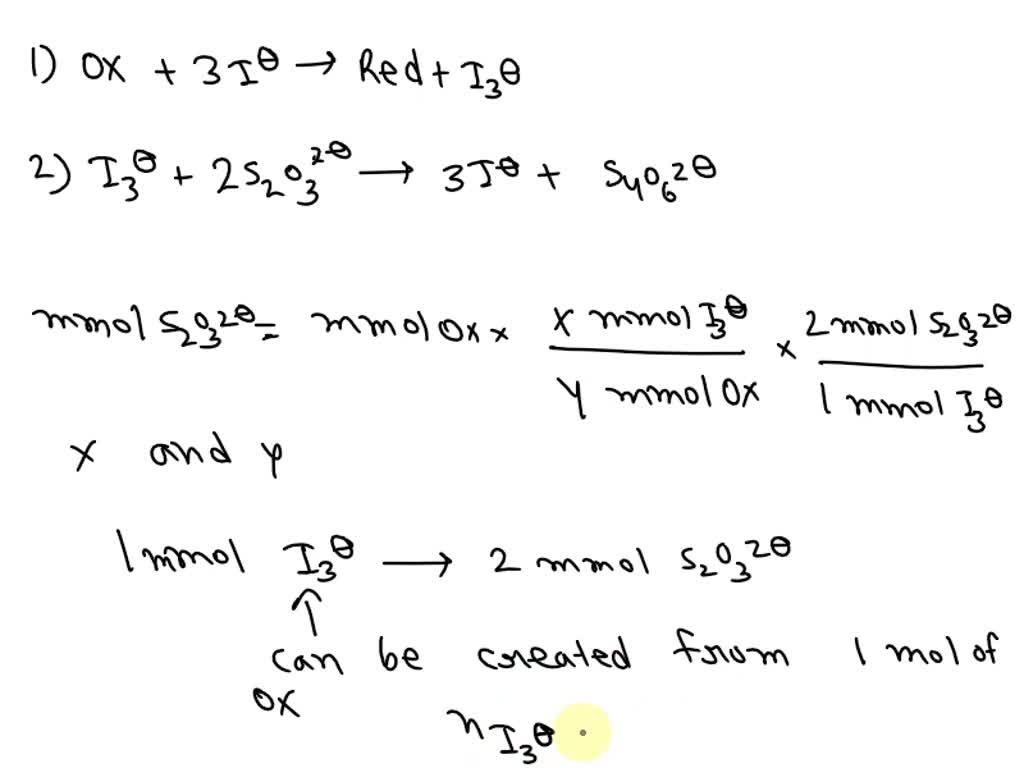 1) Ox + 3I⊖ → Red + I₃⊖
2) I₃⊖ + 2S₂O₃²⊖ → 3I⊖ + S₄O₆²⊖
mmol S₂O₃²⊖ = mmol Ox × (x mmol I₃⊖ / y mmol Ox) × (2 mmol S₂O₃²⊖ / 1 mmol I₃⊖)
x and y
1 mmol I₃⊖ → 2 mmol S₂O₃²⊖
↑
can be created from 1 mol of
Ox
n I₃⊖